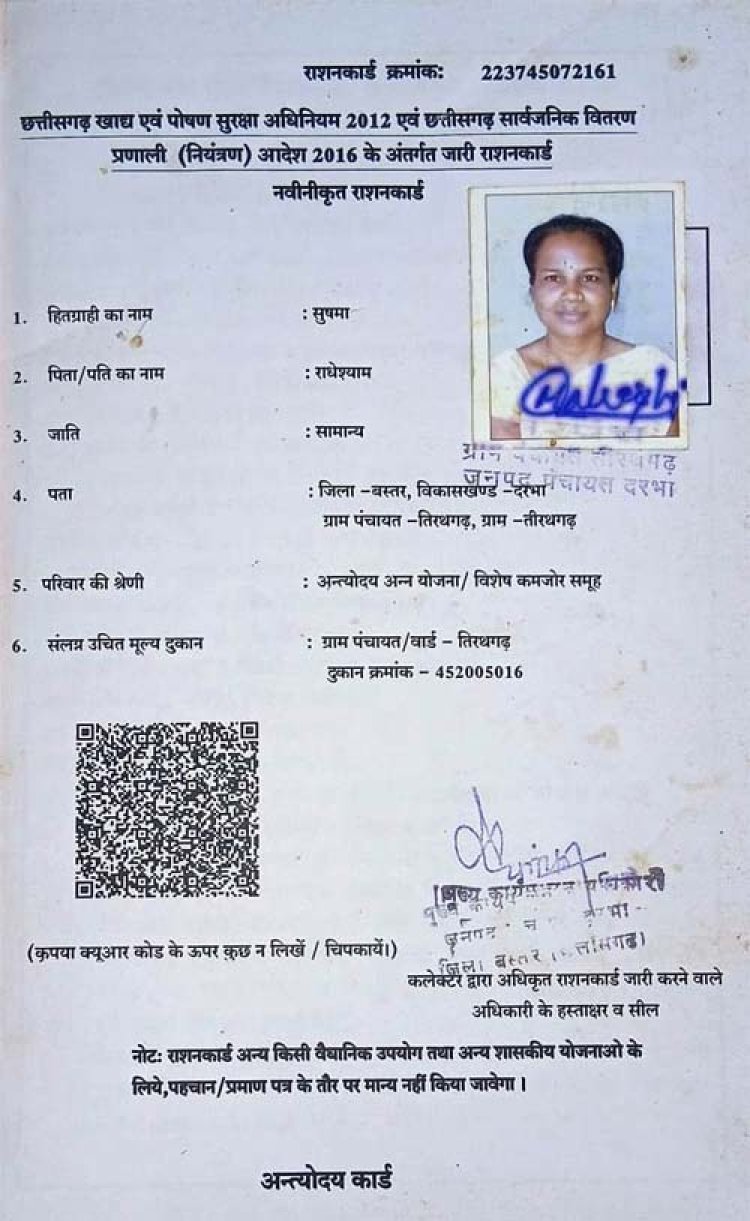 राशनकार्ड क्रमांक: 223745072161
छत्तीसगढ़ खाद्य एवं पोषण सुरक्षा अधिनियम 2012 एवं छत्तीसगढ़ सार्वजनिक वितरण
प्रणाली (नियंत्रण) आदेश 2016 के अंतर्गत जारी राशनकार्ड
नवीनीकृत राशनकार्ड
1. हितग्राही का नाम : सुषमा
2. पिता/पति का नाम : राधेश्याम
3. जाति : सामान्य
ग्राम पंचायत तीरथगढ़
जनपद पंचायत दरभा
4. पता : जिला –बस्तर, विकासखण्ड –दरभा
ग्राम पंचायत –तिरथगढ़, ग्राम –तीरथगढ़
5. परिवार की श्रेणी : अन्त्योदय अन्न योजना/ विशेष कमजोर समूह
6. संलग्न उचित मूल्य दुकान : ग्राम पंचायत/वार्ड – तिरथगढ़
दुकान क्रमांक – 452005016
मुख्य कार्यपालन अधिकारी
जनपद
जिला बस्तर (छत्तीसगढ़)
(कृपया क्यूआर कोड के ऊपर कुछ न लिखें / चिपकायें।)
कलेक्टर द्वारा अधिकृत राशनकार्ड जारी करने वाले
अधिकारी के हस्ताक्षर व सील
नोटः राशनकार्ड अन्य किसी वैद्यानिक उपयोग तथा अन्य शासकीय योजनाओ के
लिये,पहचान/प्रमाण पत्र के तौर पर मान्य नहीं किया जावेगा ।
अन्त्योदय कार्ड